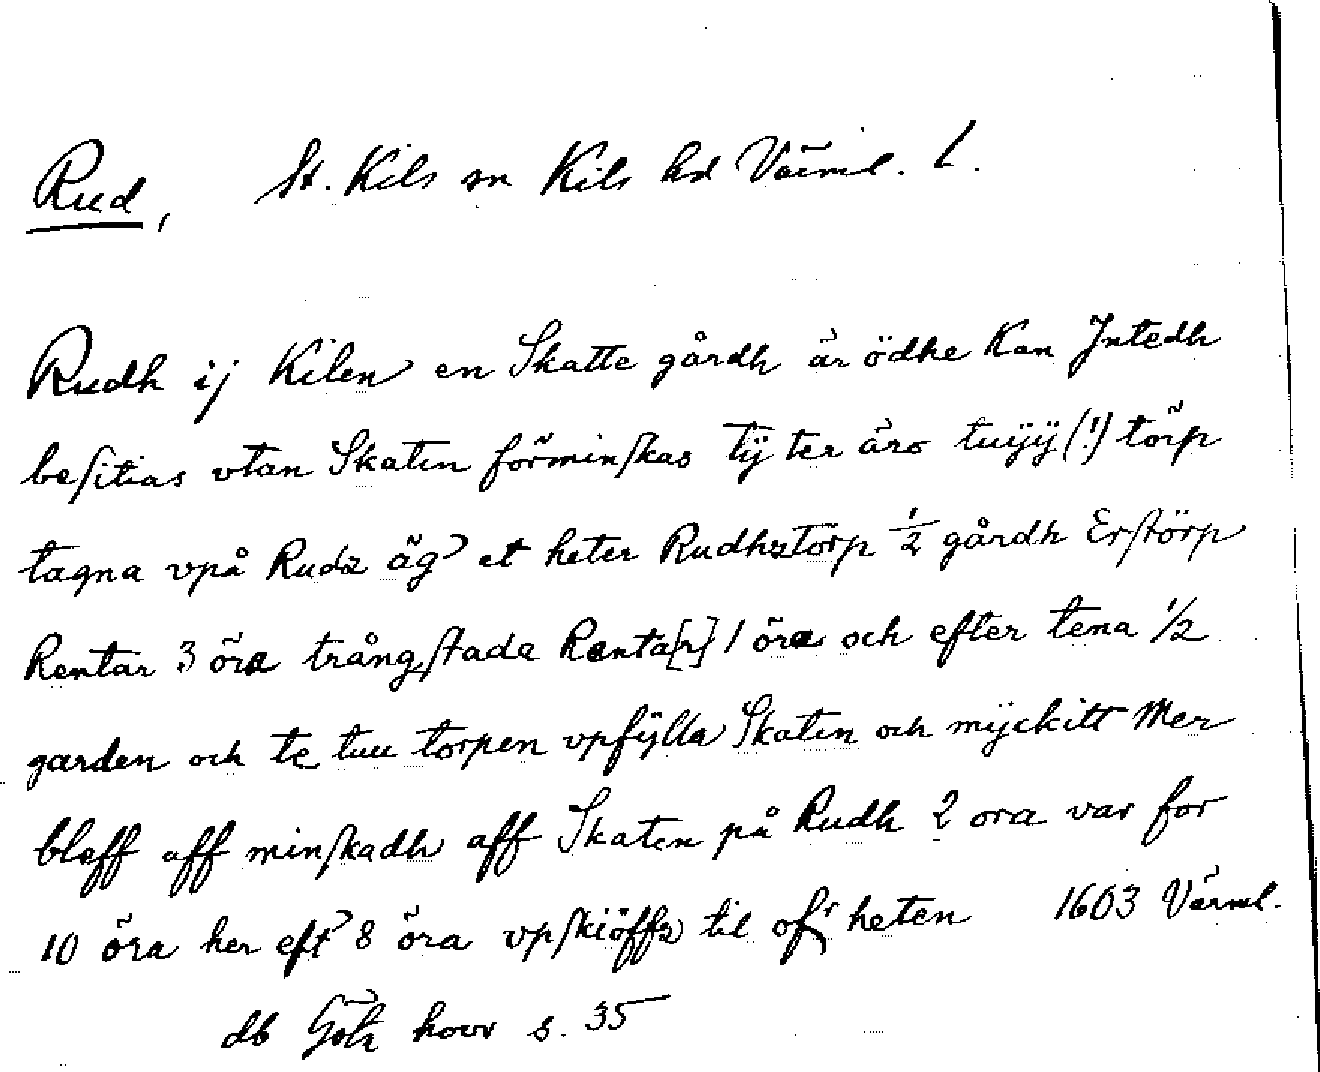 Rud, St. Kils sn Kils hd Värml. l.
Rudh ij Kilen en Skatte gårdh är ödhe Kan Jntedh
besitias vtan Skaten förminskas tÿ ter äro tuÿÿ (!) törp
tagna vpå Rudz äg et heter Rudhztörp 1/2 gårdh Erstörp
Rentar 3 öra trångstada Renta[r] 1 öra och efter tena 1/2
garden och te tuu torpen vpfÿlla Skaten och mÿckitt Mer
bleff aff minskadh aff Skaten på Rudh 2 ora var for
10 öra her eft 8 öra vpskiöffz til ofr heten 1603 Värml.
db Göt hovr s. 35